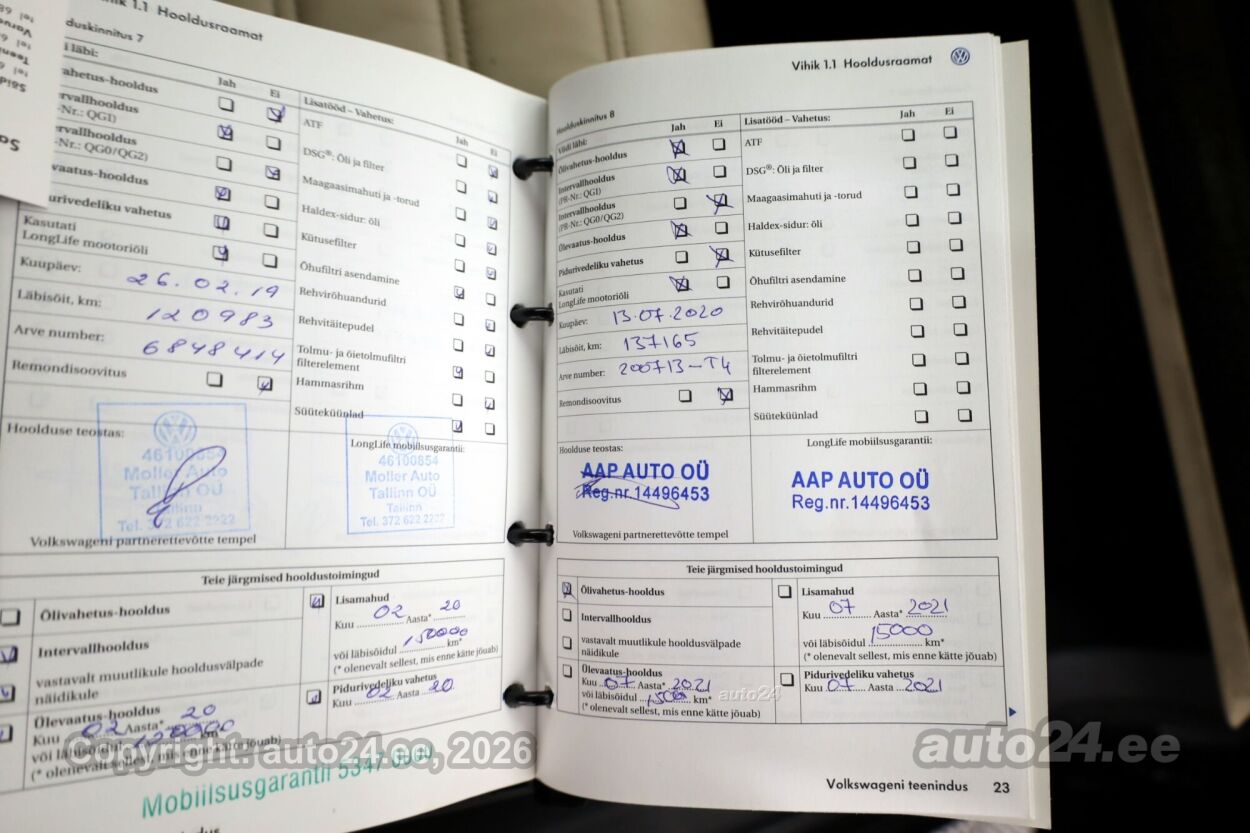 Vihik 1.1 Hooldusraamat
duskinnitus 7
i läbi:
Jah
Ei
ahetus-hooldus
ervallhooldus
-Nr.: QG1)
ervallhooldus
-Nr.: QG0/QG2)
vaatus-hooldus
durivedeliku vahetus
Kasutati
LongLife mootoriõli
Kuupäev: 26.02.19
Läbisõit, km: 120983
Arve number: 6848414
Remondisoovitus
Lisatööd – Vahetus:
Jah
Ei
ATF
DSG®: Õli ja filter
Maagaasimahuti ja -torud
Haldex-sidur: õli
Kütusefilter
Õhufiltri asendamine
Rehvirõhuandurid
Rehvitäitepudel
Tolmu- ja õietolmufiltri
filterelement
Hammasrihm
Süüteküünlad
Hoolduse teostas:
46100854
Moller Auto
Tallinn OÜ
Tallinn
Tel. 372 622 2222
Volkswageni partnerettevõtte tempel
LongLife mobiilsusgarantii:
46100854
Moller Auto
Tallinn OÜ
Tallinn
Tel. 372 622 2222
Teie järgmised hooldustoimingud
Õlivahetus-hooldus
Intervallhooldus
vastavalt muutlikule hooldusvälpade
näidikule
Ülevaatus-hooldus
Kuu 02 Aasta* 20
või läbisõidul 150000 km*
(* olenevalt sellest, mis enne kätte jõuab)
Lisamahud
Kuu 02 Aasta* 20
150000
või läbisõidul km*
(* olenevalt sellest, mis enne kätte jõuab)
Pidurivedeliku vahetus
Kuu 02 Aasta 20
Mobiilsusgarantii 5347 0000
Vihik 1.1 Hooldusraamat
Hoolduskinnitus 8
Viidi läbi:
Jah
Ei
Õlivahetus-hooldus
Intervallhooldus
(PR-Nr.: QG1)
Intervallhooldus
(PR-Nr.: QG0/QG2)
Ülevaatus-hooldus
Pidurivedeliku vahetus
Kasutati
LongLife mootoriõli
Kuupäev: 13.07.2020
Läbisõit, km: 137165
Arve number: 200713-T4
Remondisoovitus
Lisatööd – Vahetus:
Jah
Ei
ATF
DSG®: Õli ja filter
Maagaasimahuti ja -torud
Haldex-sidur: õli
Kütusefilter
Õhufiltri asendamine
Rehvirõhuandurid
Rehvitäitepudel
Tolmu- ja õietolmufiltri
filterelement
Hammasrihm
Süüteküünlad
Hoolduse teostas:
AAP AUTO OÜ
Reg.nr.14496453
Volkswageni partnerettevõtte tempel
LongLife mobiilsusgarantii:
AAP AUTO OÜ
Reg.nr.14496453
Teie järgmised hooldustoimingud
Õlivahetus-hooldus
Intervallhooldus
vastavalt muutlikule hooldusvälpade
näidikule
Ülevaatus-hooldus
Kuu 07 Aasta* 2021
või läbisõidul km*
(* olenevalt sellest, mis enne kätte jõuab)
Lisamahud
Kuu 07 Aasta* 2021
15000
või läbisõidul km*
(* olenevalt sellest, mis enne kätte jõuab)
Pidurivedeliku vahetus
Kuu 07 Aasta 2021
Volkswageni teenindus 23
auto24
Copyright: auto24.ee, 2026
auto24.ee